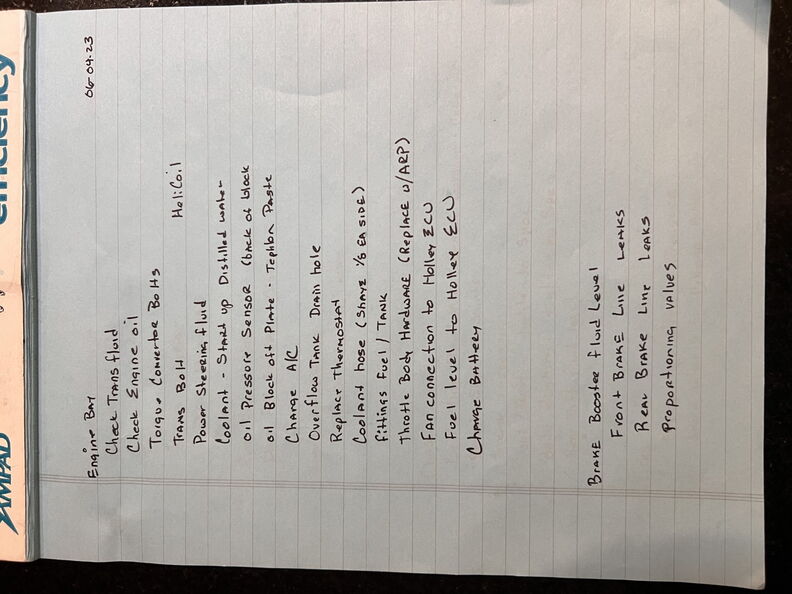 AMPAD
efficiency
06-04-23
Engine Bay
Check Trans fluid
Check Engine oil
Torque Convertor Bolts
Trans Bolt HeliCoil
Power Steering fluid
Coolant - Start up Distilled water
oil Pressure Sensor (back of block
oil Block off Plate - Tephlon Paste
Charge A/C
Overflow Tank Drain hole
Replace Thermostat
Coolant hose (Shave 1/8 EA SIDE)
fittings Fuel / TANK
Throttle Body Hardware (Replace w/ARP)
FAN connection to Holley ECU
Fuel level to Holley ECU
Change Battery
Brake Booster fluid Level
Front Brake Line Leaks
Rear Brake Line Leaks
Proportioning values